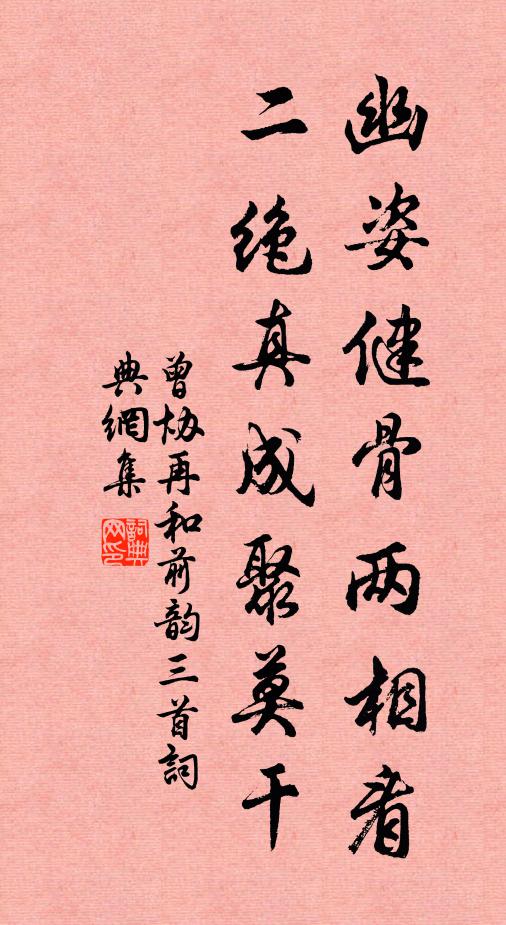 幽姿健骨两相看
二绝真成聚莫干
曾协再和前韵三首詞
典網集
詞典网印